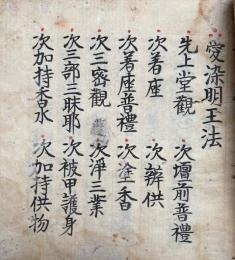 愛染明王法
先上堂觀 次壇前普禮
次着座 次辨供
次着座普禮 次塗香
次三密觀 次淨三業
次三部三昧耶 次被甲護身
次加持香水 次加持供物